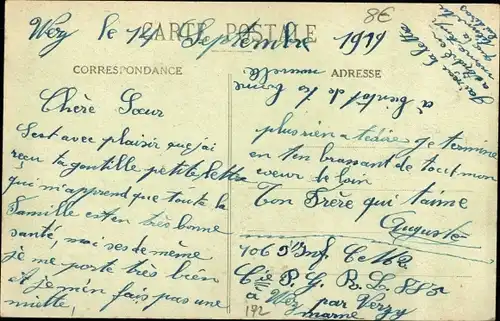 8€
CARTE POSTALE
Wez le 14 Septembre 1919
CORRESPONDANCE
ADRESSE
Chère Sœur
Sest avec plaisir que j'ai
reçu ta gentille petite lettre
qui m'apprend que toute la
Famille est en très bonne
santé, moi ses de même
je me porte très bien
et je m'en fais pas une
miette,
à bientôt de te
plus rien a te dire je termine
en ten brassant de tout mon
cœur de loin
Ton Frère qui t'aime
Auguste
106
Cie P. G. R. L. 885
à Wez par Verzy
marne
192